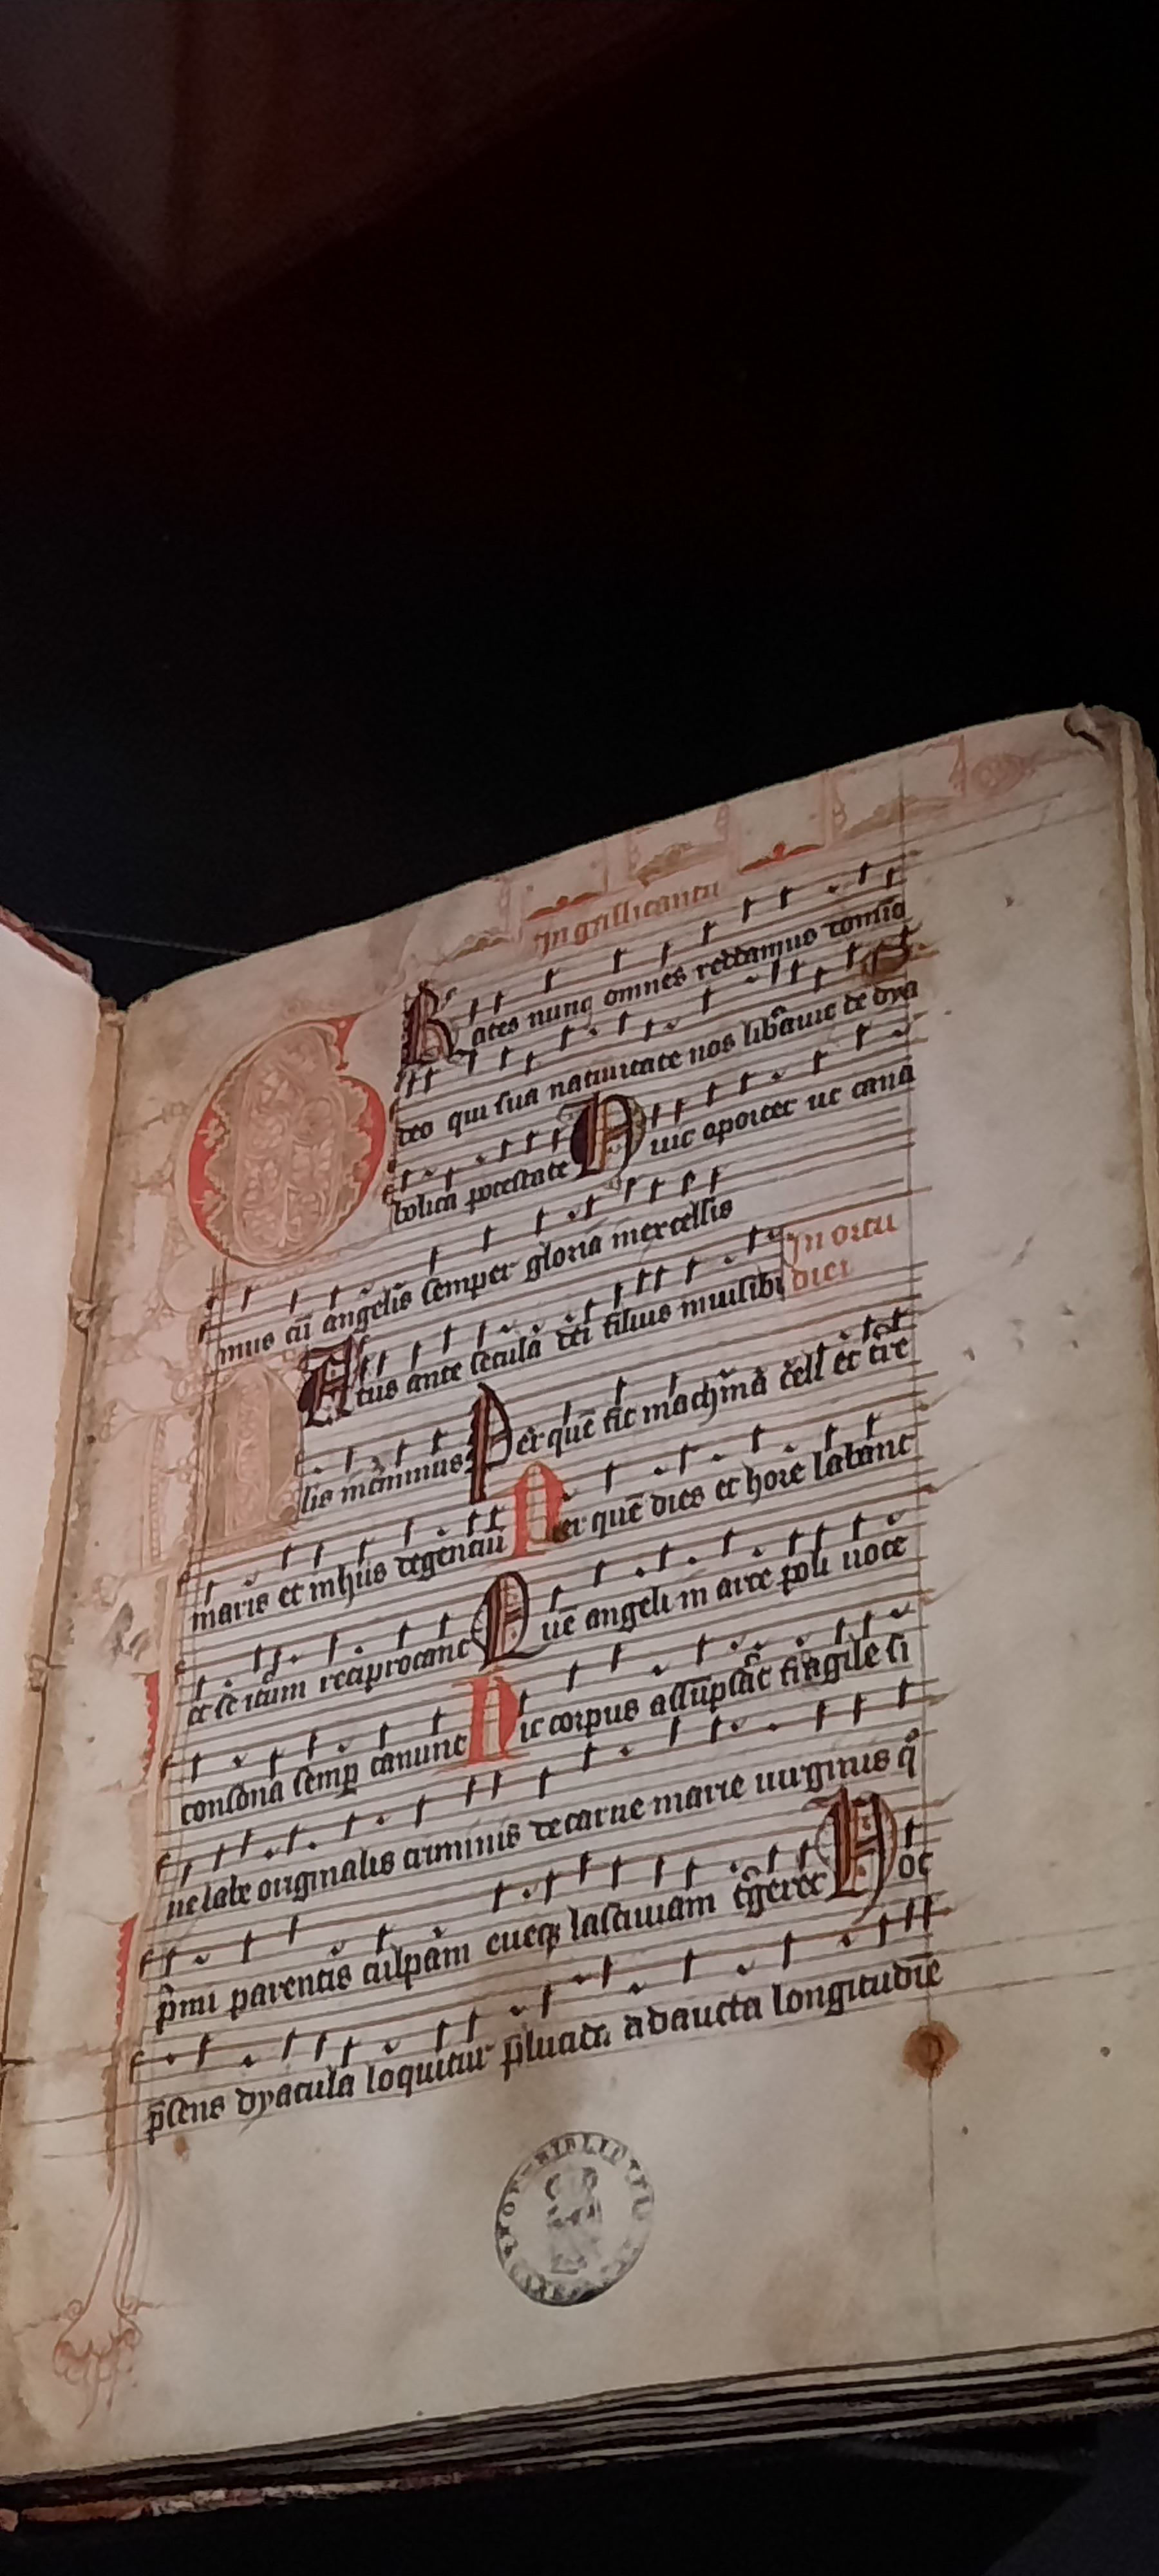 In gallicantu
GRates nunc omnes reddamus domino
deo qui sua natiuitate nos libauit de dya
bolica potestate Huic oportet ut cana
mus cū angelis semper gloria in excelsis
NAtus ante secula dei filius inuisibi In ortu
lis Per quē fit machina celi et tr̄e diei
maris et in hijs degenciū Per quē dies et hore labant
et se itm̄ reciprocant Quē angeli in arce poli uoce
consona semp canunt Hic corpus assūpsāt fragile si
ne labe originalis criminis de carne marie uirginis q̊
p̄mi parentis culpam eueqꝫ lasciuiam Hoc
p̄sens dyacula loquitur adaucta longitudīe